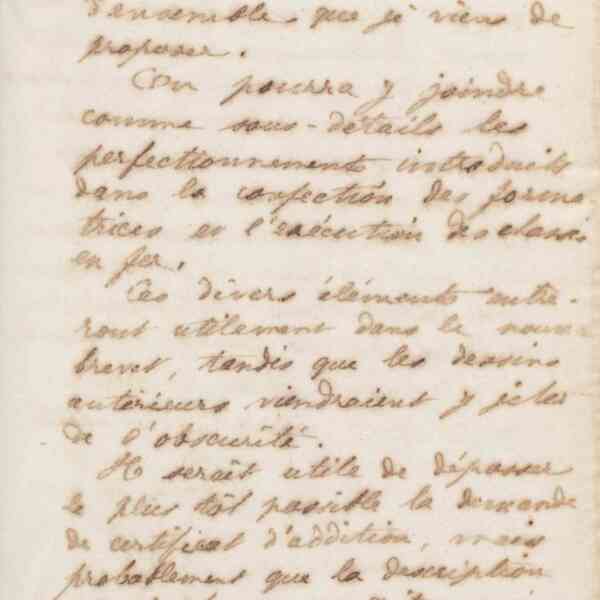 d'ensemble que je viens de
proposer.
On pourra y joindre
comme sous-détails les
perfectionnements introduits
dans la confection des forma
trices et l'exécution des
en fer.
Ces divers éléments entre-
ront utilement dans le nouveau
brevet, tandis que les dessins
antérieurs viendraient y jeter
de l'obscurité.
Il serait utile de déposer
le plus tôt possible la demande
de certificat d'addition, mais
probablement que la description